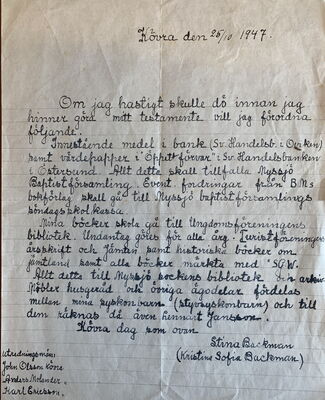 Hövra den 25/10 1947.
Om jag hastigt skulle dö innan jag
hinner göra mitt testamente vill jag förordna
följande:
Innestående medel i bank (Sv. Handelsb. i Oviken)
samt värdepapper i "Öppet förvar" i Sv. Handelsbanken
i Östersund. Allt detta skall tillfalla Myssjö
Baptistförsamling. Event. fordringar från B.M:s
bokförlag skall gå till Myssjö baptistförsamlings
söndagsskolkassa.
Mina böcker skola gå till Ungdomsföreningens
bibliotek. Undantag göres för alla årg. Juristföreningens
årsskrift och Jämten samt historiska böcker om
Jämtland samt alla böcker märkta med "S.G.W.
Allt detta till Myssjö sockens bibliotek
Möbler husgeråd och övriga ägodelar fördelas
mellan mina syskonbarn (styvsyskonbarn) och till
dem räknas då även hennart Jansson.
Hövra dag som ovan
Stina Backman
(Kristina Sofia Backman)
utredningsmän:
John Olsson Köne
Anders Molander.
Karl Ericsson.